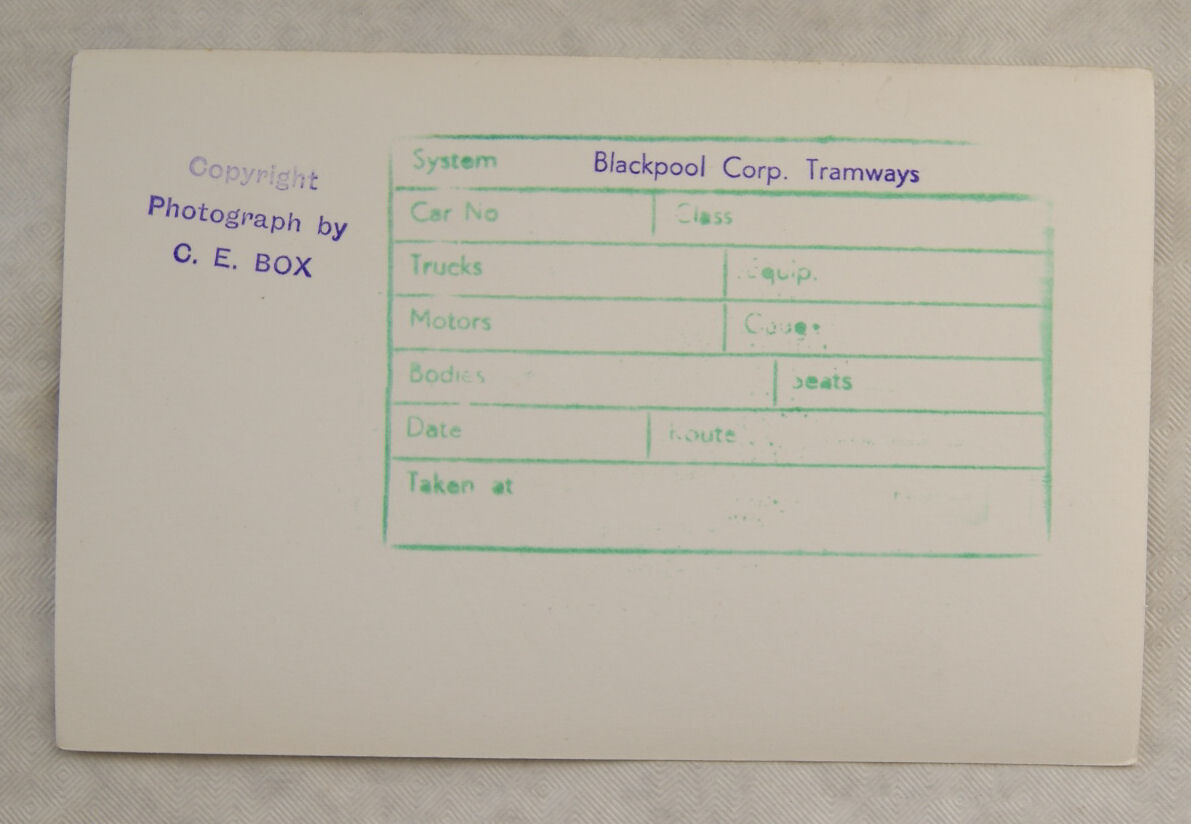 Copyright
Photograph by
C. E. BOX
System Blackpool Corp. Tramways
Car No Class
Trucks Equip.
Motors Gauge
Bodies Seats
Date Route
Taken at